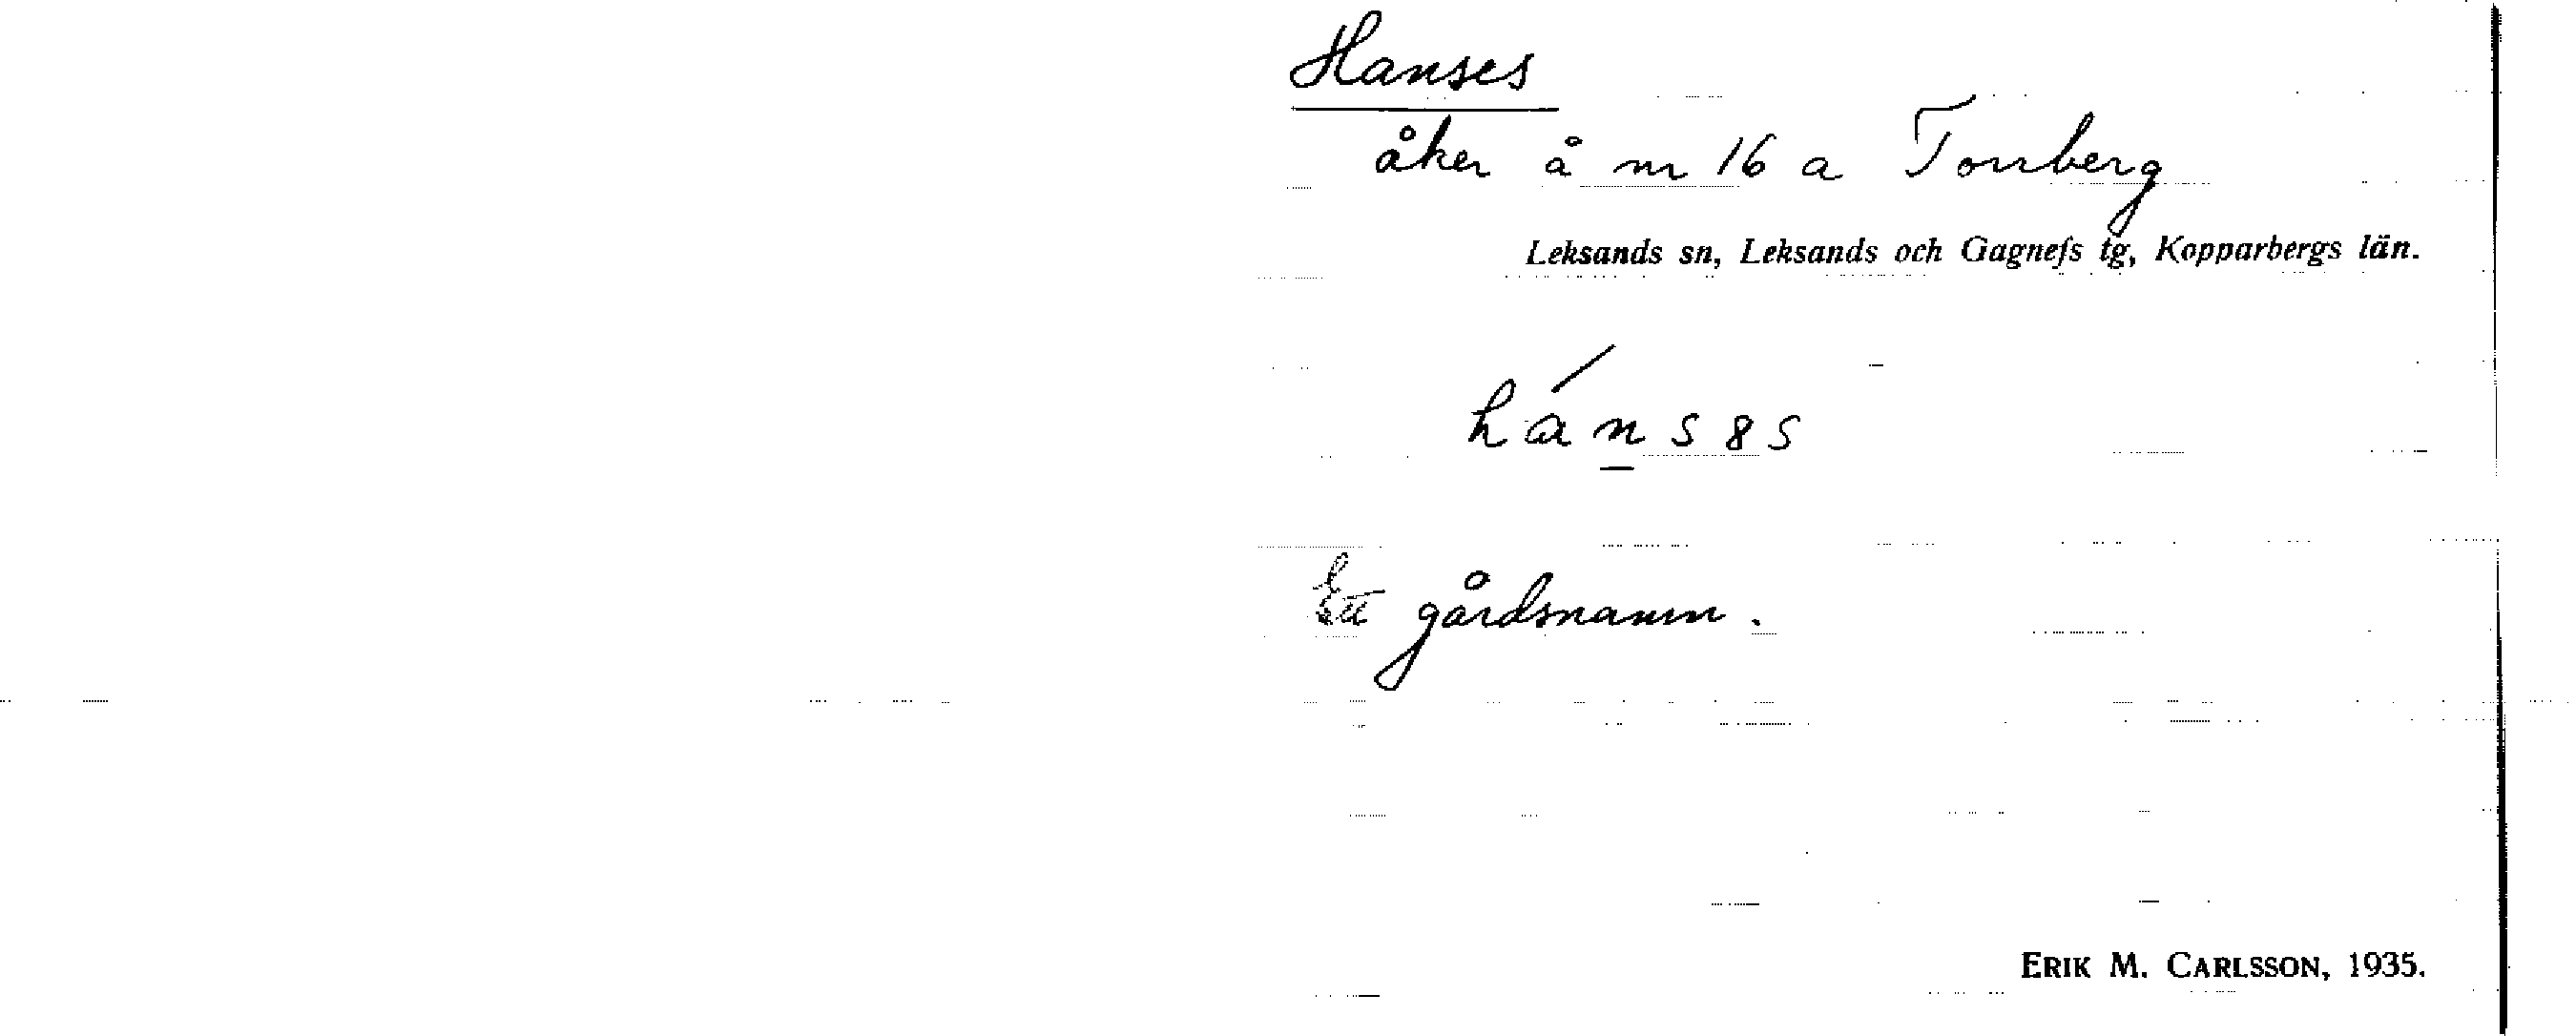 Hanses
åker å nr 16 a Torrberg
Leksands sn, Leksands och Gagnefs tg, Kopparbergs län.
hánsɞs
Ett gårdsnamn.
ERIK M. CARLSSON, 1935.